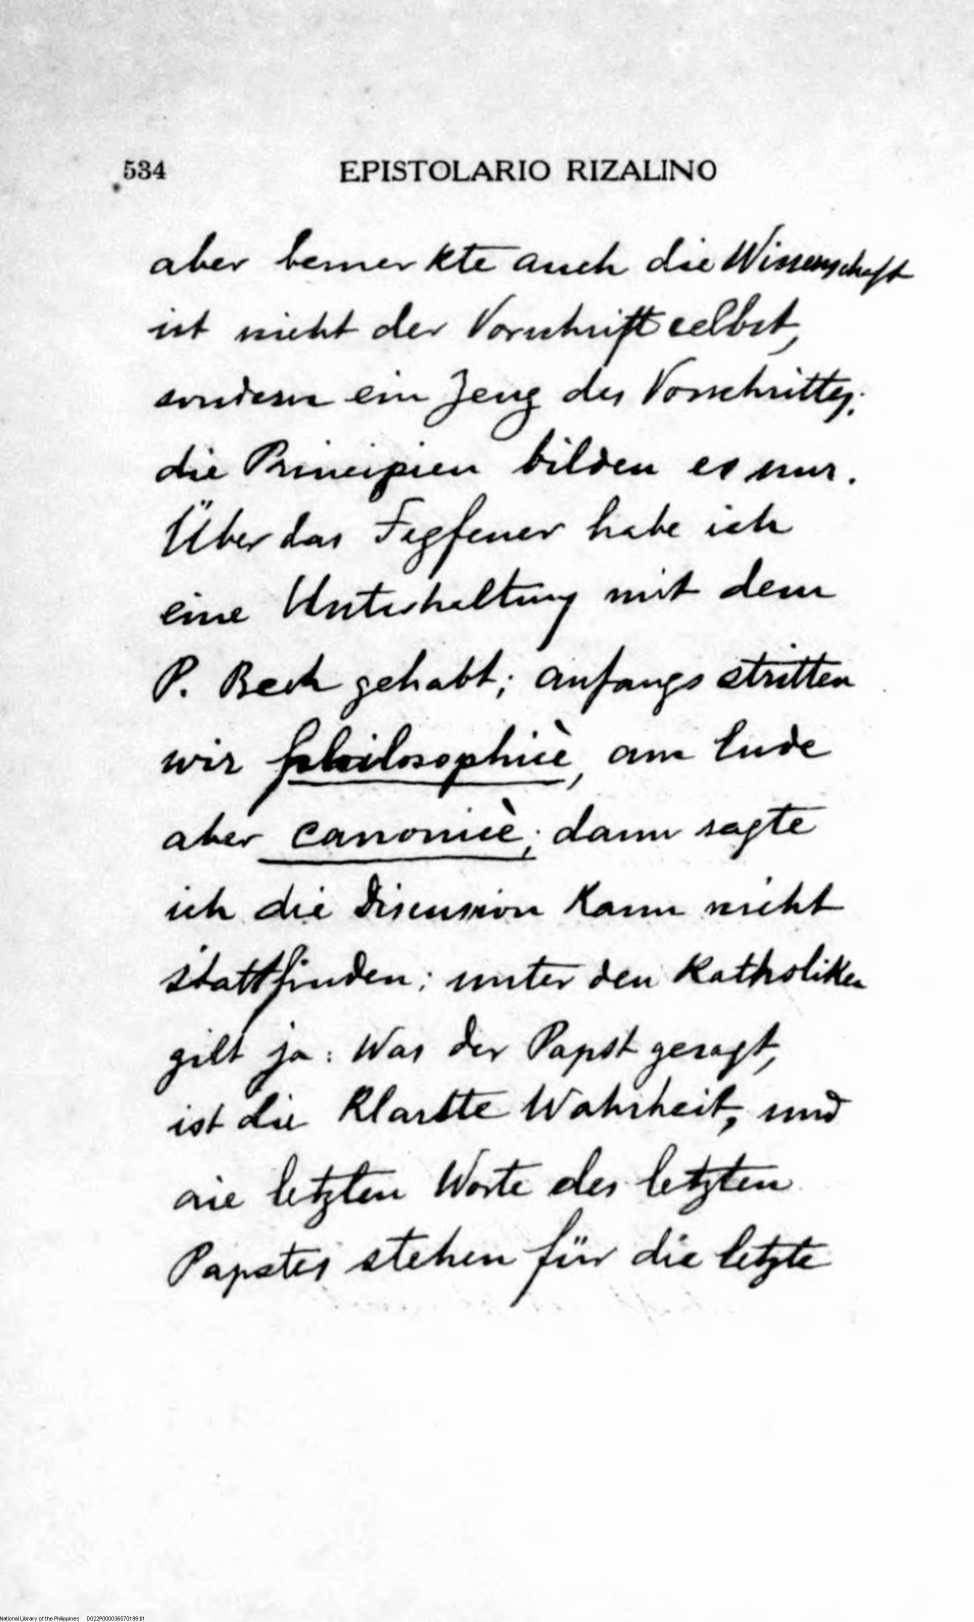 534 EPISTOLARIO RIZALINO
aber bemerkte auch die Wissenschaft
ist nicht der Vorschrift selbst,
sondern ein Zeug des Vorschrittes;
die Principien bilden es nur.
Über das Fegfeuer habe ich
eine Unterhaltung mit dem
P. Beck gehabt; anfangs stritten
wir philosophicè, am Ende
aber canonicè; dann sagte
ich die Discussion kann nicht
stattfinden: unter den Katholiken
gilt ja: Was der Papst gesagt,
ist die klarste Wahrheit, und
die letzten Worte des letzten
Papstes stehen für die letzte
National Library of the Philippines